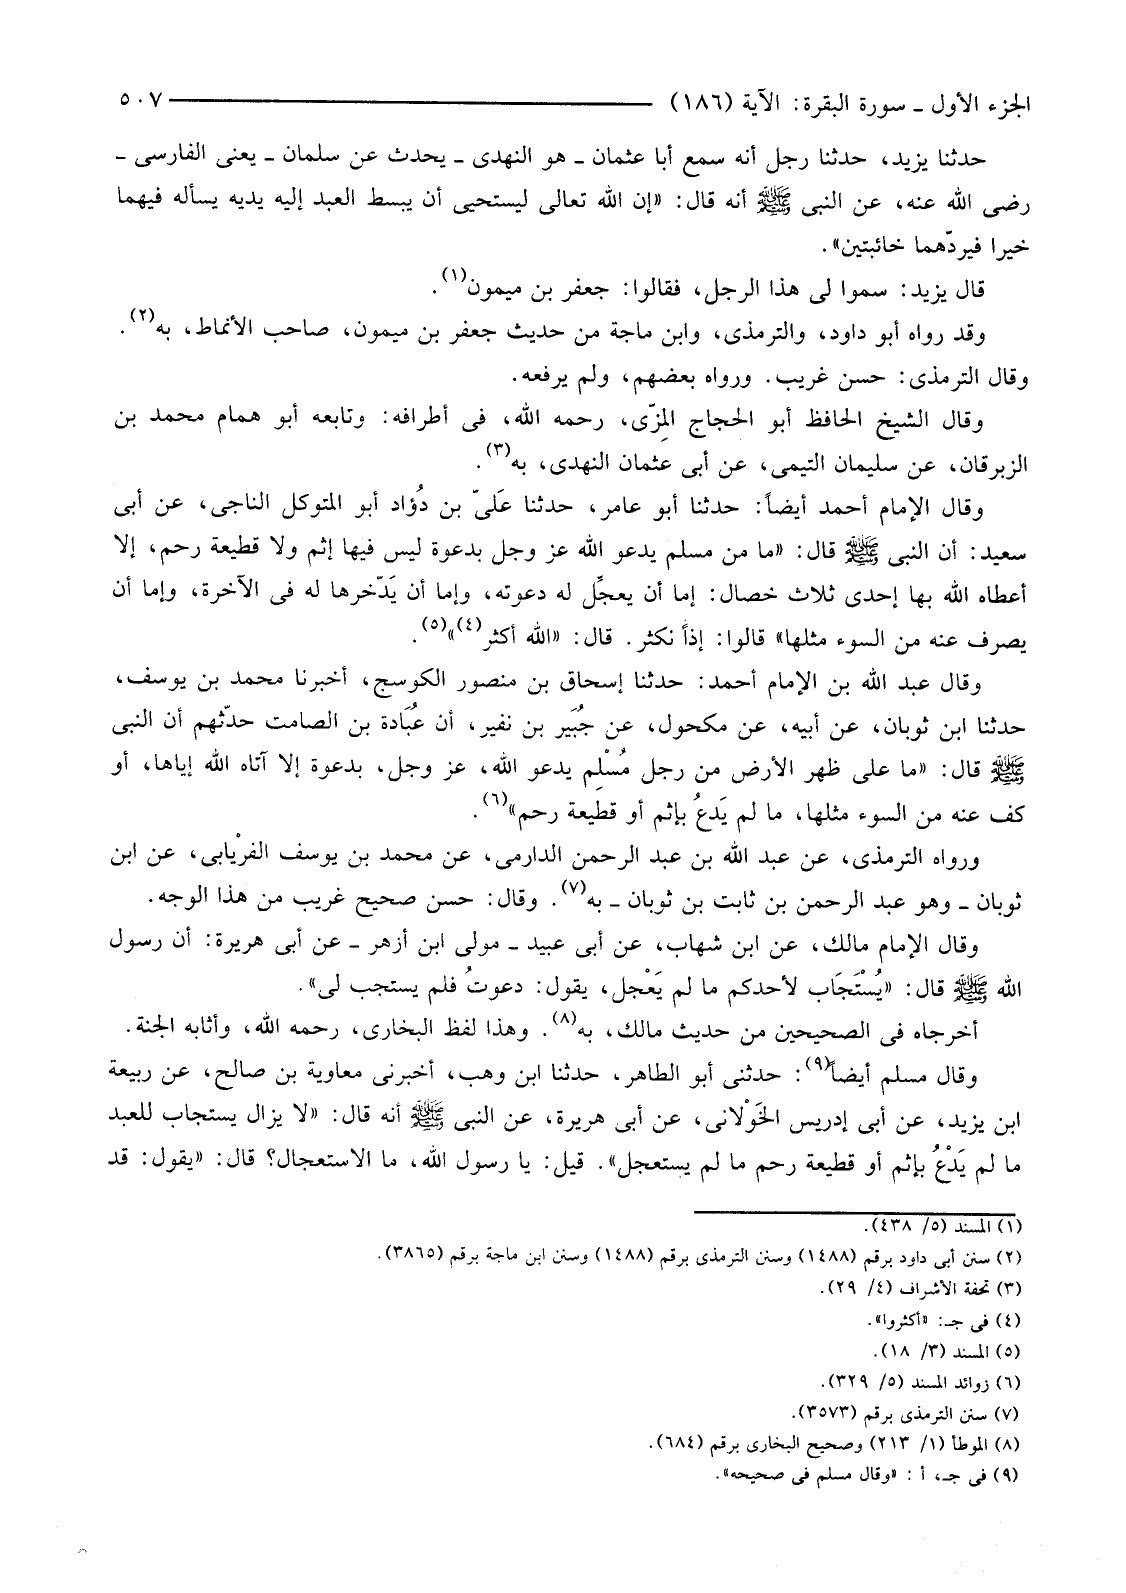 الجزء الأول ـ سورة البقرة: الآية (١٨٦) ٥٠٧
حدثنا يزيد، حدثنا رجل أنه سمع أبا عثمان ـ هو النهدى ـ يحدث عن سلمان ـ يعنى الفارسى ـ
رضى الله عنه، عن النبى ﷺ أنه قال: «إن الله تعالى ليستحيى أن يبسط العبد إليه يديه يسأله فيهما
خيرا فيردّهما خائبتين».
قال يزيد: سموا لى هذا الرجل، فقالوا: جعفر بن ميمون(١).
وقد رواه أبو داود، والترمذى، وابن ماجة من حديث جعفر بن ميمون، صاحب الأنماط، به(٢).
وقال الترمذى: حسن غريب. ورواه بعضهم، ولم يرفعه.
وقال الشيخ الحافظ أبو الحجاج المِزّى، رحمه الله، فى أطرافه: وتابعه أبو همام محمد بن
الزبرقان، عن سليمان التيمى، عن أبى عثمان النهدى، به(٣).
وقال الإمام أحمد أيضاً: حدثنا أبو عامر، حدثنا عَلىّ بن دُؤاد أبو المتوكل الناجى، عن أبى
سعيد: أن النبى ﷺ قال: «ما من مسلم يدعو الله عز وجل بدعوة ليس فيها إثم ولا قطيعة رحم، إلا
أعطاه الله بها إحدى ثلاث خصال: إما أن يعجِّل له دعوته، وإما أن يَدّخرها له فى الآخرة، وإما أن
يصرف عنه من السوء مثلها» قالوا: إذاً نكثر. قال: «الله أكثر(٤)»(٥).
وقال عبد الله بن الإمام أحمد: حدثنا إسحاق بن منصور الكوسج، أخبرنا محمد بن يوسف،
حدثنا ابن ثوبان، عن أبيه، عن مكحول، عن جُبَير بن نفير، أن عُبَادة بن الصامت حدّثهم أن النبى
ﷺ قال: «ما على ظهر الأرض من رجل مُسْلِم يدعو الله، عز وجل، بدعوة إلا آتاه الله إياها، أو
كف عنه من السوء مثلها، ما لم يَدعُ بإثم أو قطيعة رحم»(٦).
ورواه الترمذى، عن عبد الله بن عبد الرحمن الدارمى، عن محمد بن يوسف الفرْيابى، عن ابن
ثوبان ـ وهو عبد الرحمن بن ثابت بن ثوبان ـ به(٧). وقال: حسن صحيح غريب من هذا الوجه.
وقال الإمام مالك، عن ابن شهاب، عن أبى عبيد ـ مولى ابن أزهر ـ عن أبى هريرة: أن رسول
الله ﷺ قال: «يُسْتَجَاب لأحدكم ما لم يَعْجل، يقول: دعوتُ فلم يستجب لى».
أخرجاه فى الصحيحين من حديث مالك، به(٨). وهذا لفظ البخارى، رحمه الله، وأثابه الجنة.
وقال مسلم أيضاً(٩): حدثنى أبو الطاهر، حدثنا ابن وهب، أخبرنى معاوية بن صالح، عن ربيعة
ابن يزيد، عن أبى إدريس الخَوْلانى، عن أبى هريرة، عن النبى ﷺ أنه قال: «لا يزال يستجاب للعبد
ما لم يَدْعُ بإثم أو قطيعة رحم ما لم يستعجل». قيل: يا رسول الله، ما الاستعجال؟ قال: «يقول: قد
(١) المسند (٥/ ٤٣٨).
(٢) سنن أبى داود برقم (١٤٨٨) وسنن الترمذى برقم (١٤٨٨) وسنن ابن ماجة برقم (٣٨٦٥).
(٣) تحفة الأشراف (٤/ ٢٩).
(٤) فى جـ: «أكثروا».
(٥) المسند (٣/ ١٨).
(٦) زوائد المسند (٥/ ٣٢٩).
(٧) سنن الترمذى برقم (٣٥٧٣).
(٨) الموطأ (١/ ٢١٣) وصحيح البخارى برقم (٦٨٤).
(٩) فى جـ، أ : «وقال مسلم فى صحيحه».